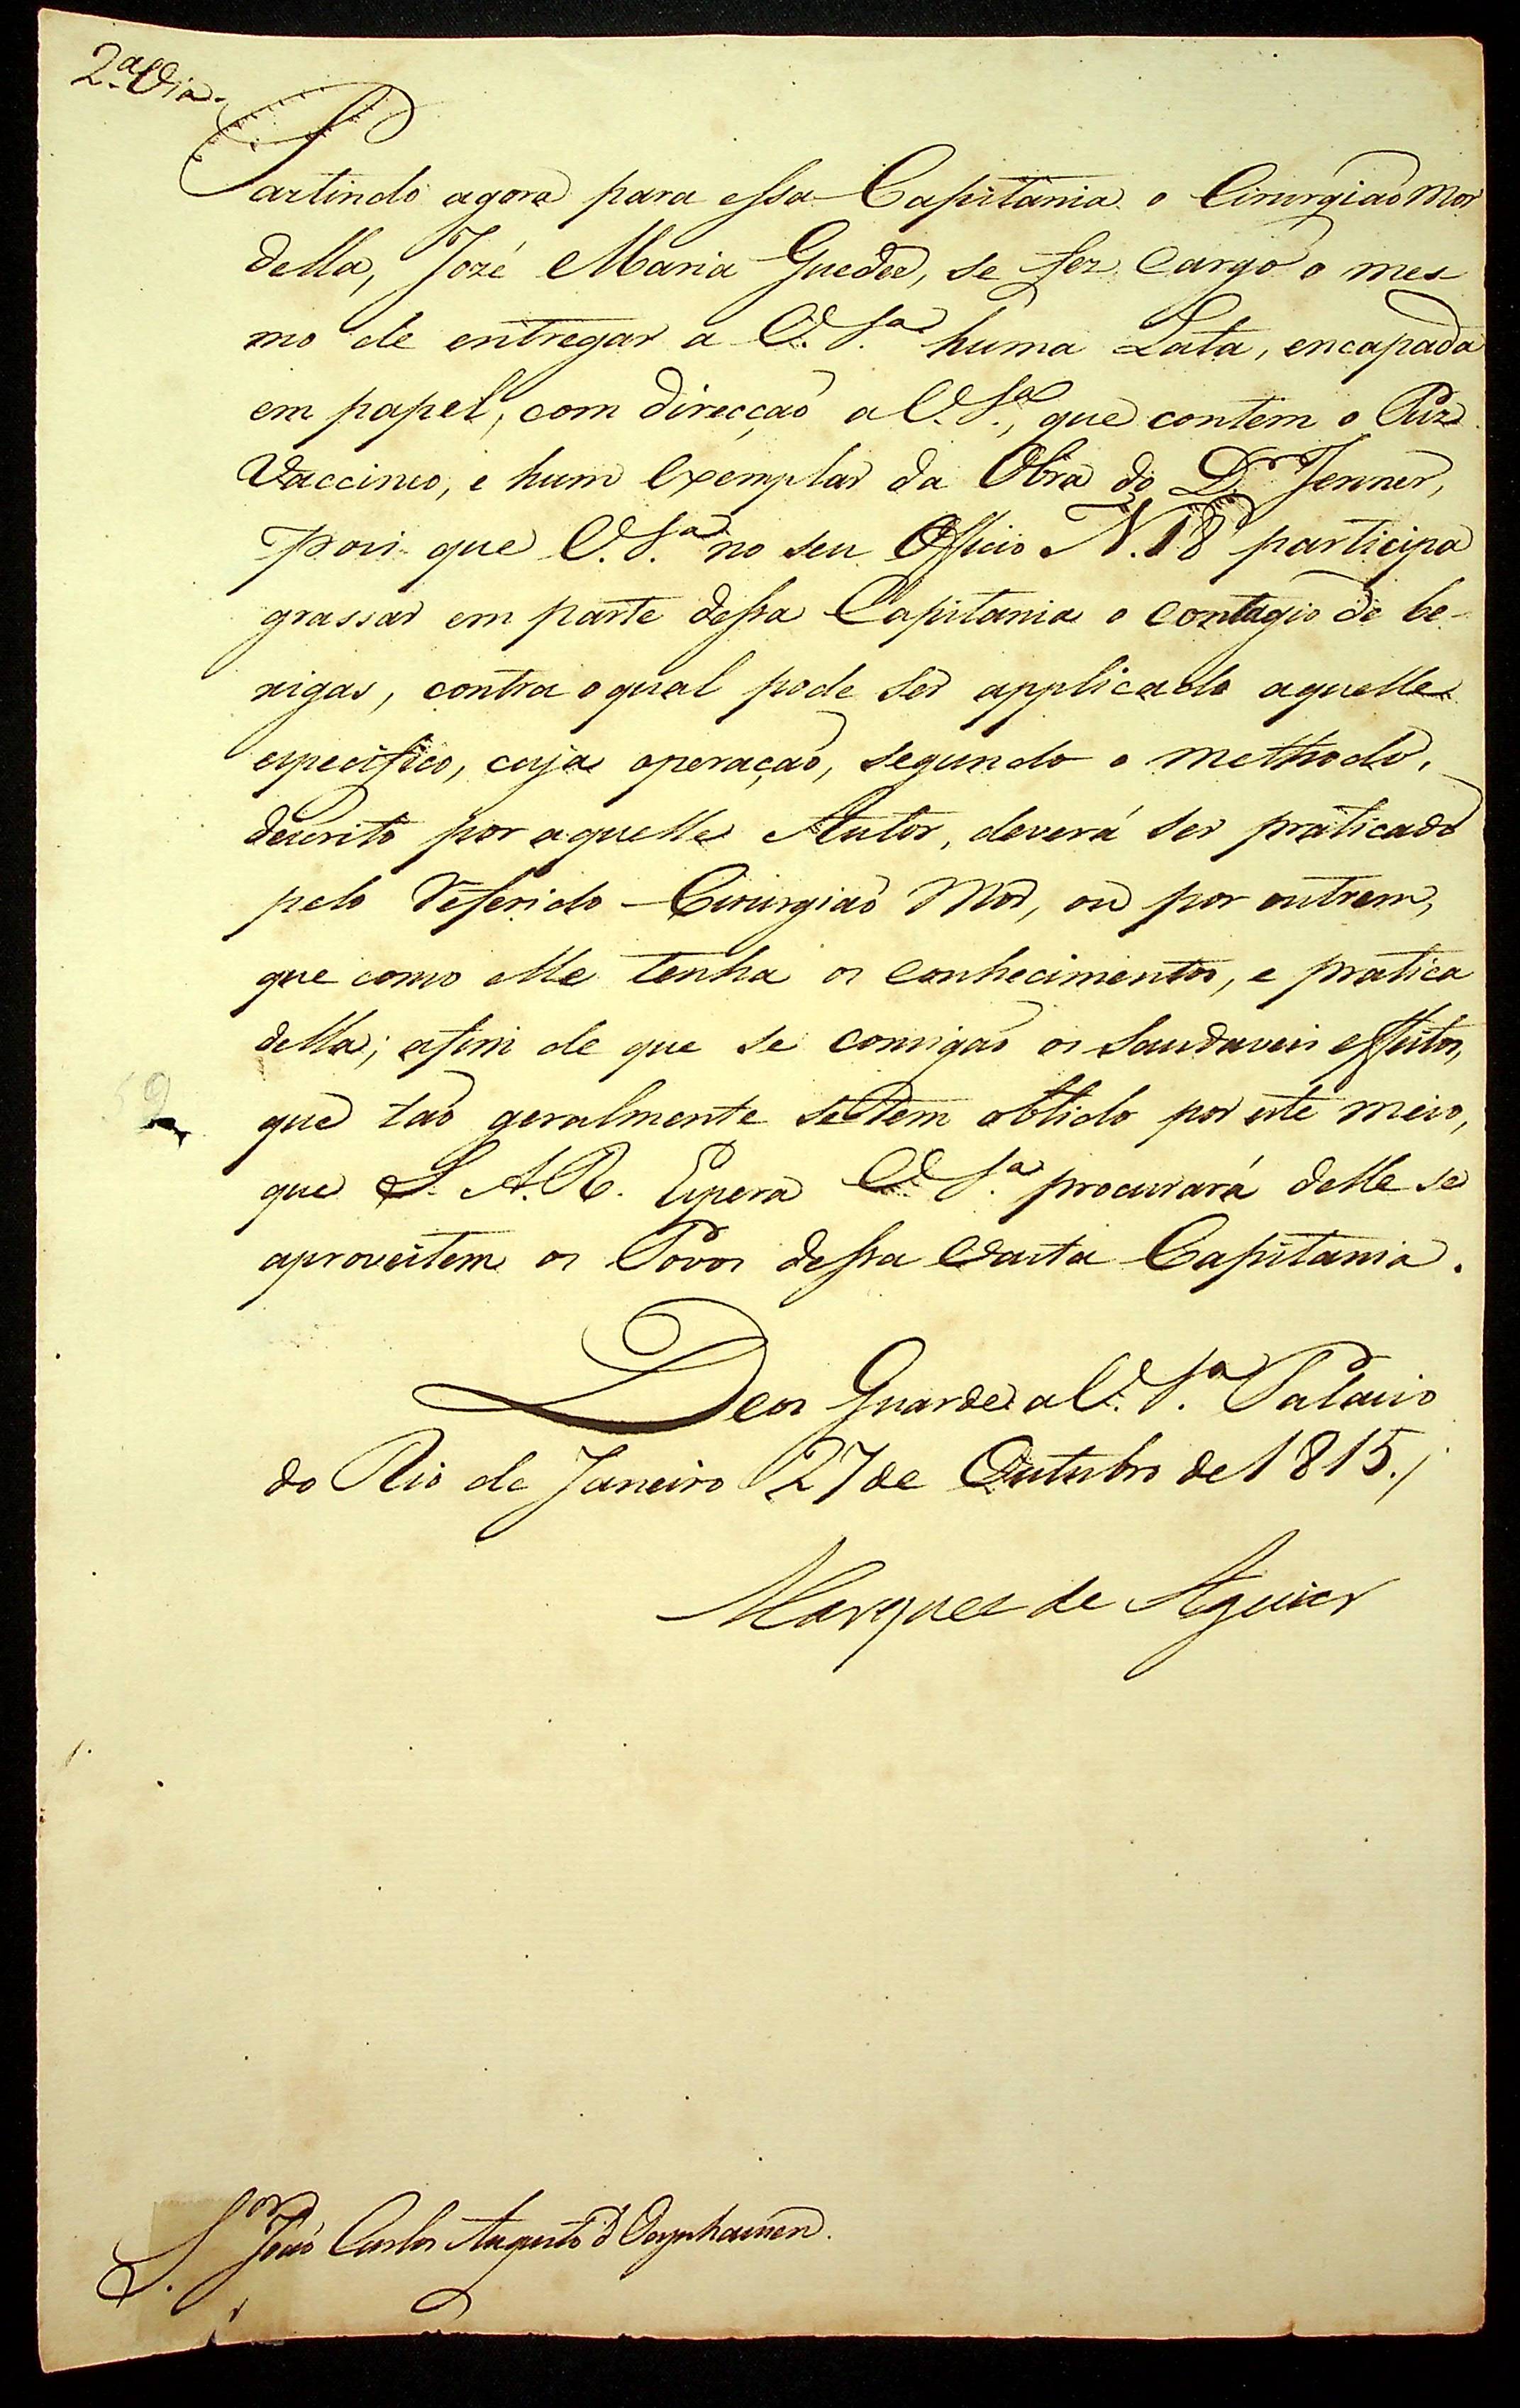 2.ª Via.
Partindo agora para essa Capitania o Cirurgiaõ Mor
della, Jozé Maria Guedes, se fez cargo o mes
mo de entregar a V. S.ª huma Lata, encapada
em papel, com direcçaõ a V. S.ª, que contem o Puz
Vaccinco, e hum exemplar da Obra do D.r Jenner,
pois que V. S.ª no seu Officio N. 18 participa
grassar em parte dessa Capitania o contagio de be-
xigas, contra o qual pode ser applicado aquelle
especifico, cuja operaçaõ, segundo o methodo,
descrito por aquelle Autor, deverá ser praticada
pelo referido Cirurgiaõ Mor, ou por outrem,
que como elle tenha os conhecimentos, e pratica
della; afim de que se consigaõ os saudaveis effeitos,
que taõ geralmente se tem obtido por este meio,
que S. A. R. Espera V. S.ª procurará delle se
aproveitem os Povos dessa vasta Capitania.
Deos Guarde a V. S.ª Palacio
do Rio de Janeiro 27 de Outubro de 1815./
Marquez de Aguiar
S.or Joaõ Carlos Augusto d'Oeynhausen.